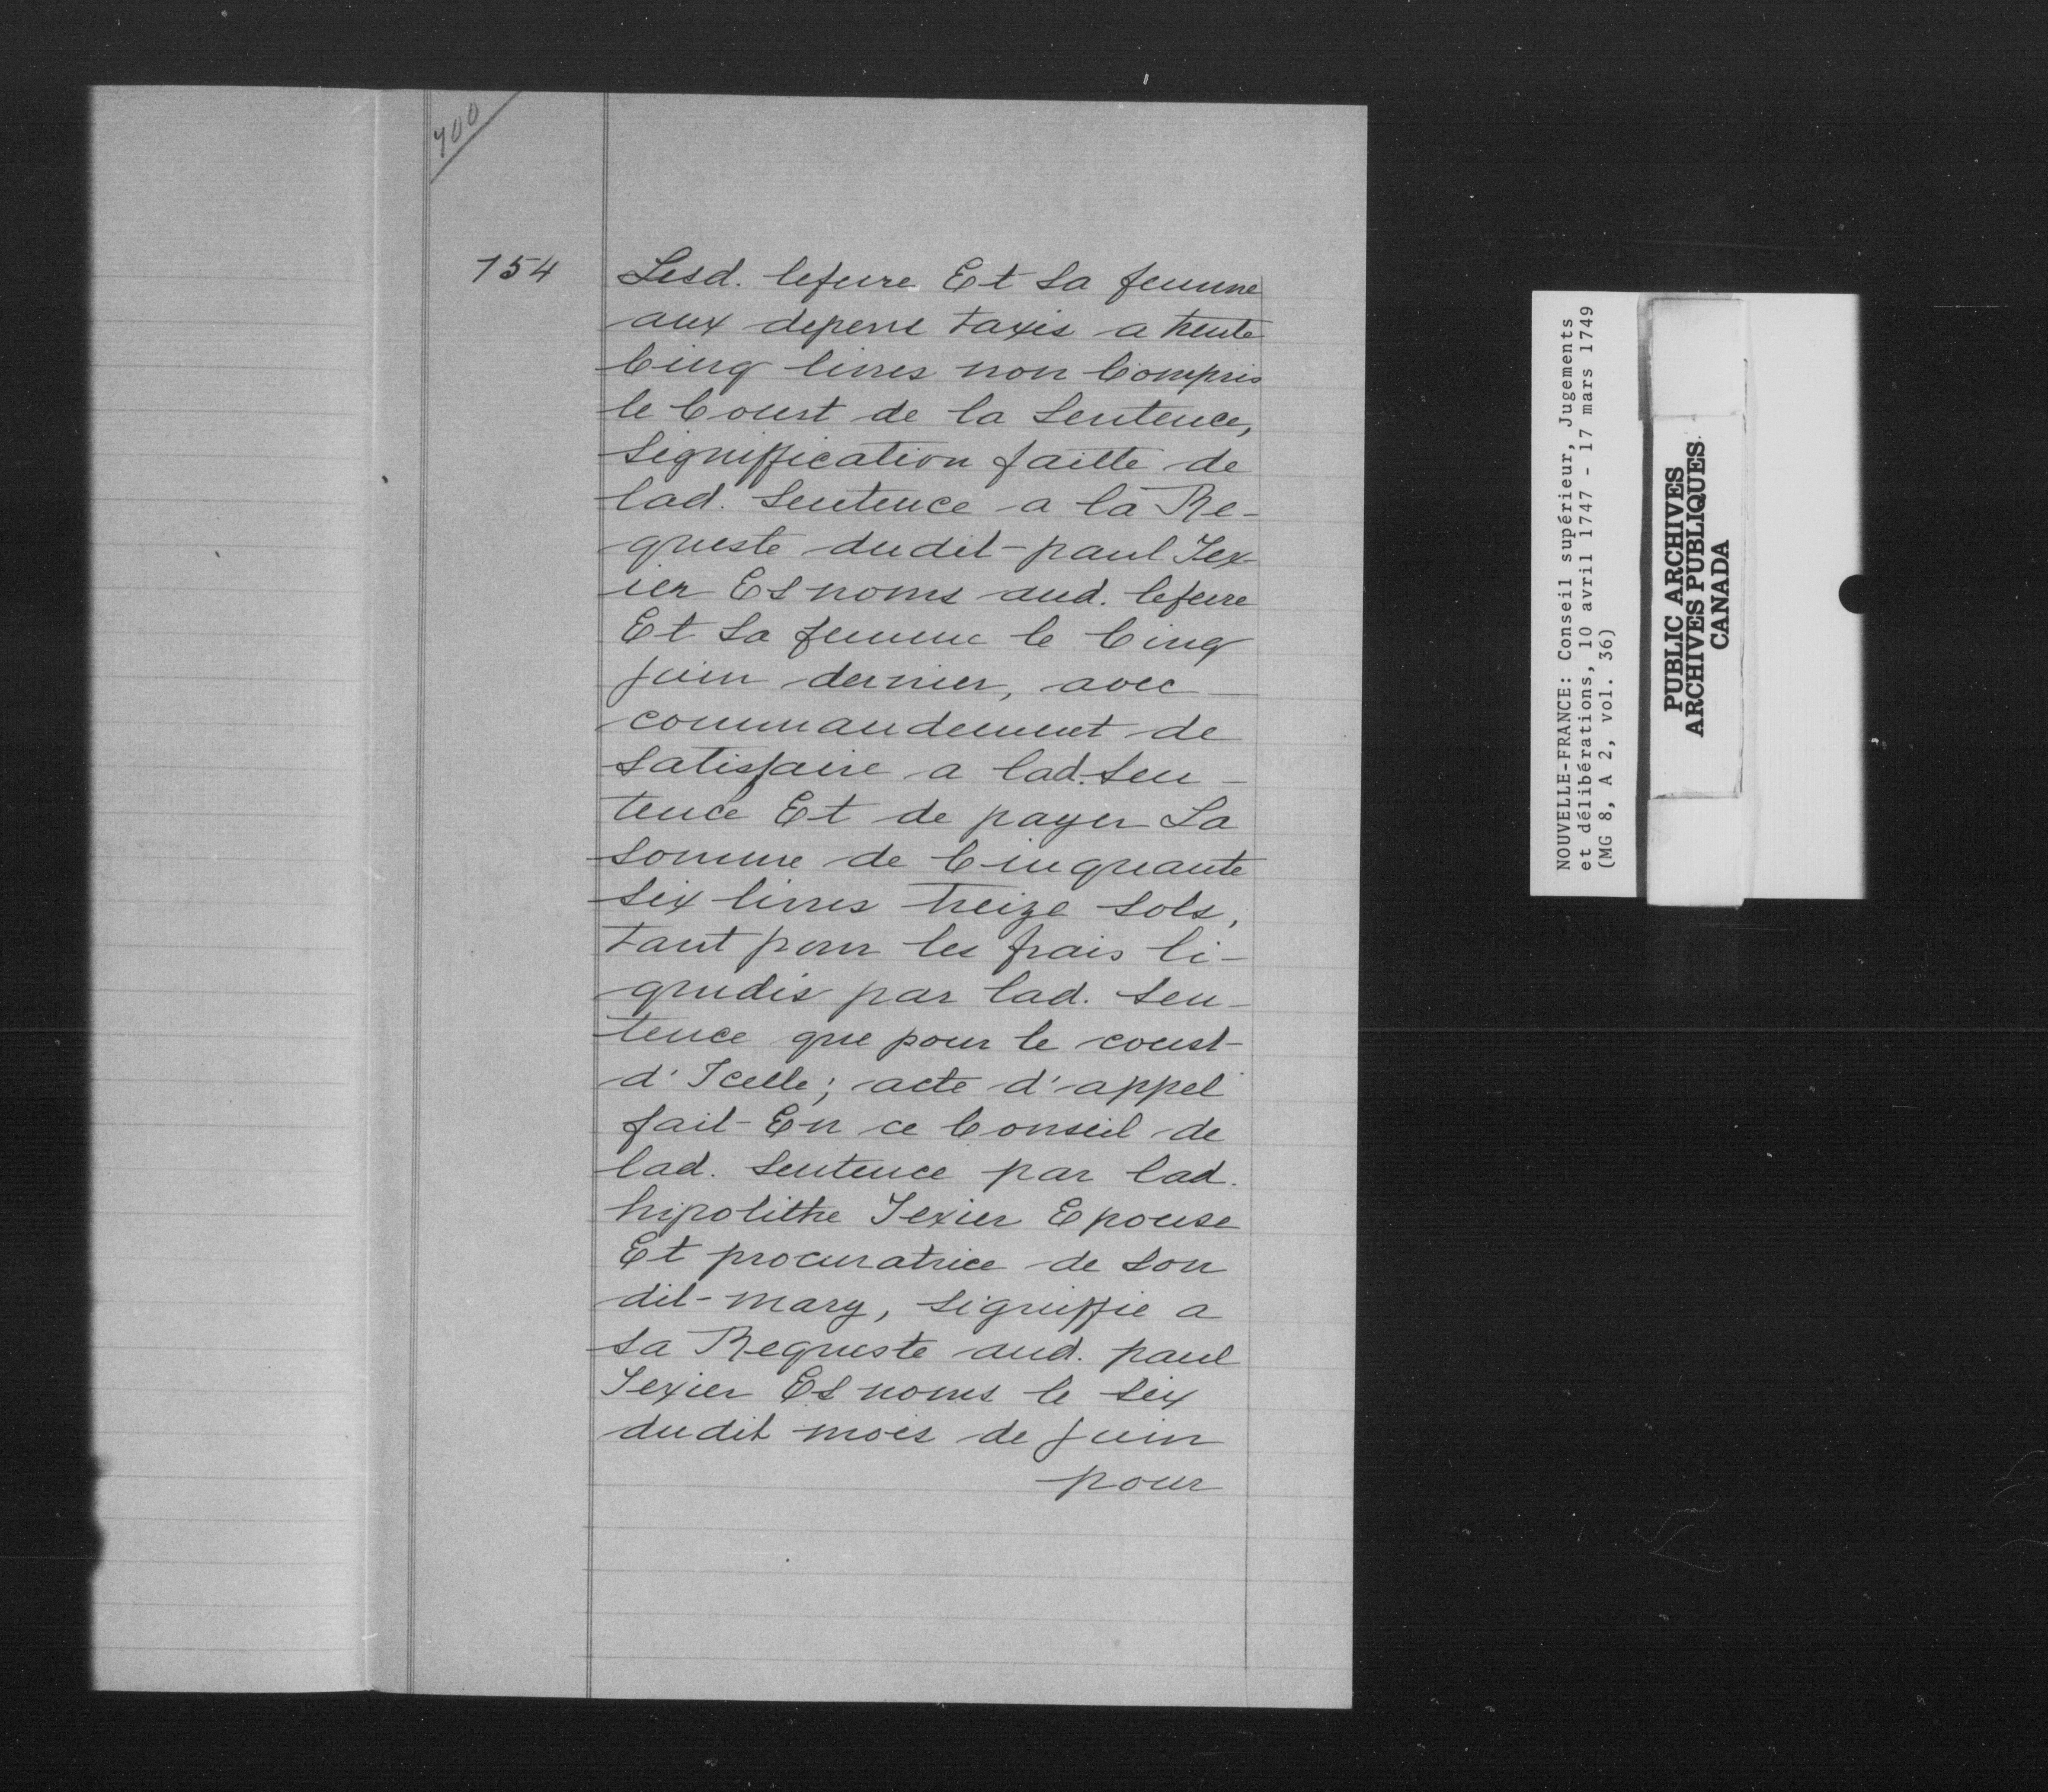 400
154
Lesd. lefevre Et Sa femme
aux depens taxés a trente
Cinq livres non Compris
le Coust de la Sentence,
Signiffication faitte de
lad. Sentence a la Re-
queste dudit paul Tex-
ier Es noms aud. lefevre
Et Sa femme le Cinq
juin dernier, avec
commandement de
Satisfaire a lad. Sen-
tence Et de payer La
Somme de Cinquante
Six livres treize Sols,
tant pour les frais li-
quidés par lad. Sen-
tence que pour le coust
d'Icelle; acte d'appel
fait En ce Conseil de
lad. Sentence par lad.
hipolithe Texier Epouse
Et procuratrice de Son
dit mary, Signiffié a
Sa Requeste aud. paul
Texier Es noms le Six
dudit mois de juin
pour
NOUVELLE-FRANCE: Conseil supérieur, Jugements
et délibérations, 10 avril 1747 - 17 mars 1749
(MG 8, A 2, vol. 36)
PUBLIC ARCHIVES
ARCHIVES PUBLIQUES
CANADA